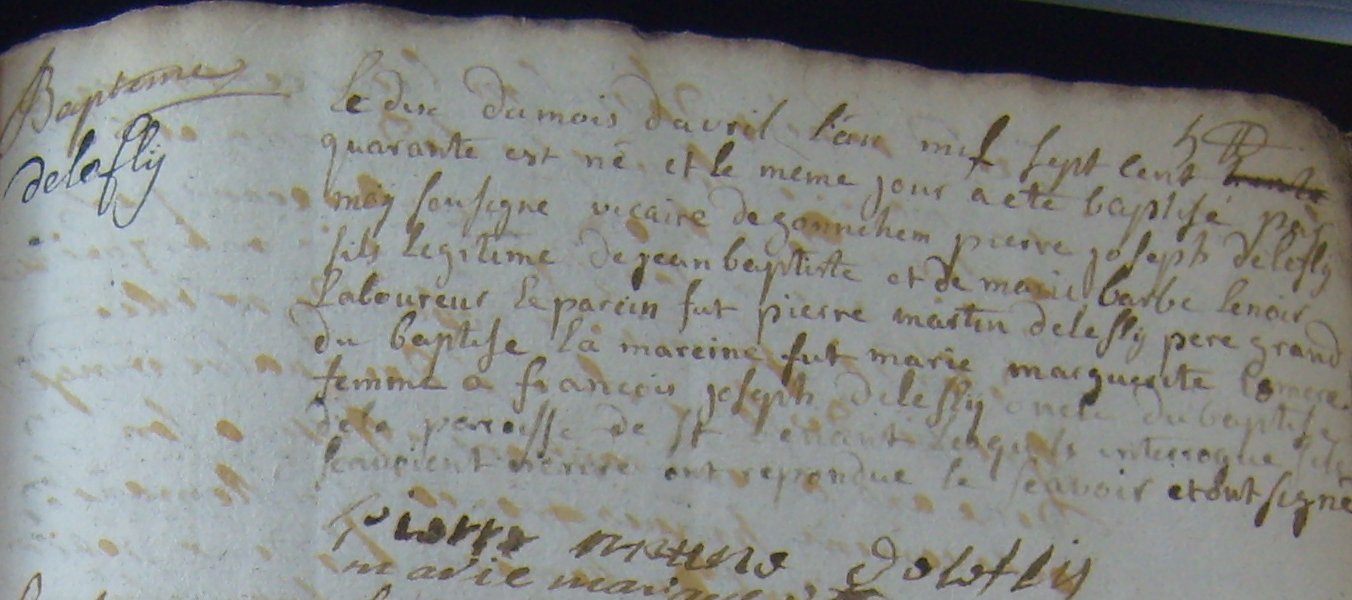 Bapteme
delaflij
Le dix du mois d'avril l'an mil sept cent trente
quarante est né et le meme jour a eté baptisé par
moy sousigné vicaire de gonnehem pierre joseph delefly
fils legitime de jean baptiste et de marie barbe lenoir
Laboureur le parain fut pierre martin delefly pere grand
du baptise la mareine fut marie marguerite
femme a francois joseph delefly oncle du baptise
dela parroisse de st venant lesquels interroque sils
scavoient ecrire ont repondue le scavoir et ont signé
pierre delefly
marie